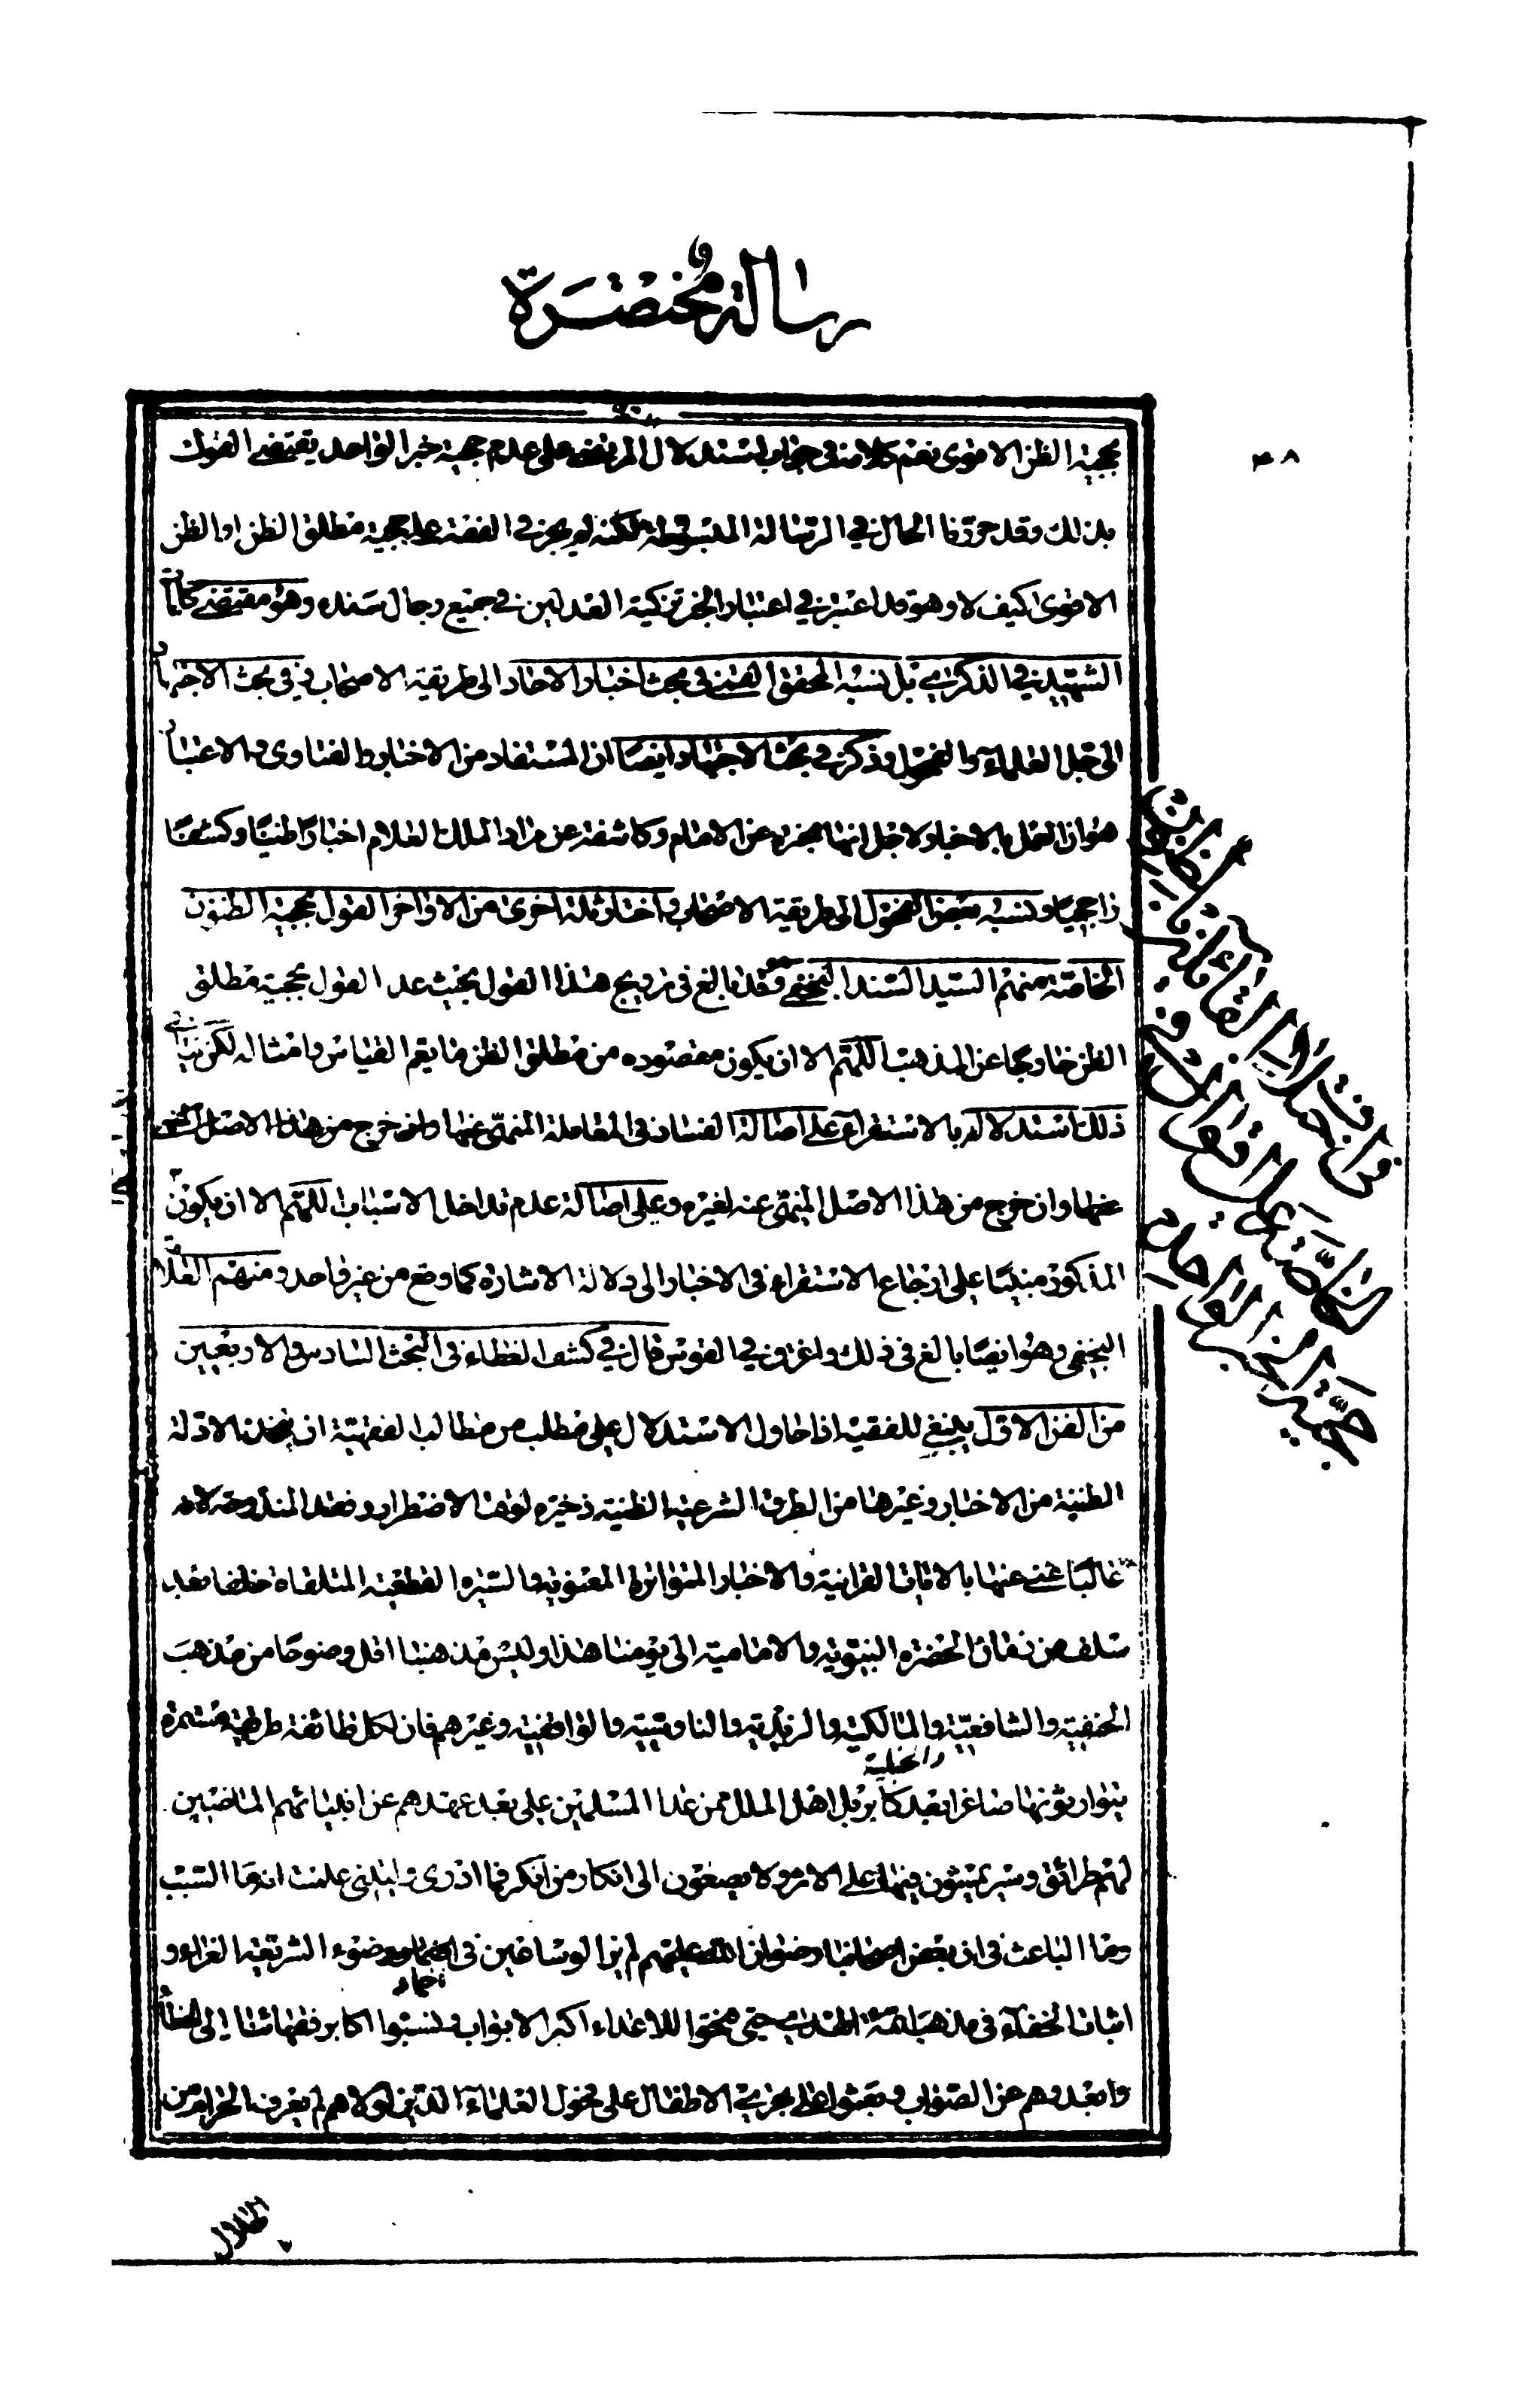 رسالة مختصرة
٣٨
بحجية الظن الاقوى نعم كلامه في جواب استدلال المرتضى على عدم حجية خبر الواحد يقتضى القول
بذلك وقد حررنا الحال في الرسالة المبسوطة لكنه لم يجز في الفقه على حجية مطلق الظن او الظن
الاقوى كيف لا وهو قد اعتبر في اعتبار الخبر تزكية العدلين في جميع رجال سنده وهو مقتضى كلام
الشهيد في الذكرى بل نسبه المحقق القمى في بحث اخبار الاحاد الى طريقة الاصحاب وفي بحث الاجتهاد
الى جل العلماء والفحول وذكر في بحث الاجتهاد ايضا ان المستفاد من الاخبار والفتاوى والاعتبار
هو ان العمل بالاخبار لاجل انها مخبره عن الامام وكاشفة عن مراد الملك العلام اخبارا ظنيا وكشفا
راجحيا ونسبه بعض الفحول الى طريقة الاصحاب واختار ثلة اخرى من الاواخر القول بحجية الظنون
الخاصة منهم السيد السند النجفى وقد بالغ في ترويج هذا القول بحيث عد القول بحجية مطلق
الظن خارجا عن المذهب اللهم الا ان يكون مقصوده من مطلق الظن ما يعم القياس وامثاله لكن ينافى
ذلك استدلاله بالاستقراء على اصالة الفساد في المعاملة المنهى عنها وان خرج من هذا الاصل
عنها وان خرج من هذا الاصل المنهى عنه لغيره وعلى اصالة عدم تداخل الاسباب اللهم الا ان يكون
المذكور مبنيا على ارجاع الاستقراء في الاخبار الى دلالة الاشارة كما وقع من غير واحد ومنهم العلامة
النجفى وهو ايضا بالغ في ذلك واغرق في القوس قال في كشف الغطاء في البحث السادس والاربعين
من الفن الاول ينبغى للفقيه اذا حاول الاستدلال على مطلب من مطالب الفقهية ان يتخذ الادلة
الظنية من الاخبار وغيرها من الطرق الشرعية الظنية ذخيره لوقت الاضطرار وفقد المندوحة لانه
غالبا غنى عنها بالايات القرانية والاخبار المتواترة المعنوية والسيره القطعية المتلقاة خلفا بعد
سلف من زمان الحضره النبوية والامامية الى يومنا هذا وليس مذهبنا اقل وضوحا من مذهب
الحنفية والشافعية والمالكية والزيدية والناوسية والواقفية وغيرهم فان لكل طائفة طريقة مستمرة
والحنبلية
يتوارثونها صاغرا بعد كابر بل اهل الملل ممن عدا المسلمين على بعد عهدهم عن انبيائهم الماضيين
لهم طرائق وسير يمشون فيها على الاثر ولا يصغون الى انكار من انكر فما ادرى وليتنى علمت انه ما السبب
وما الباعث في ان بعض اصحابنا رضوان الله عليهم لم يزالوا ساعين في اخماد ضوء الشريعة الغراء و
اخماد
اثبات الخفاء في مذهب ائمة الهدى حتى فتحوا للاعداء اكبر الابواب ونسبوا اكابر فقهائنا الى الخطأ
وابعدوهم عن الصواب وبعثوا على تجرى الاطفال على فحول العلماء الذين لولاهم لم يعرف الحرام من
الحلال